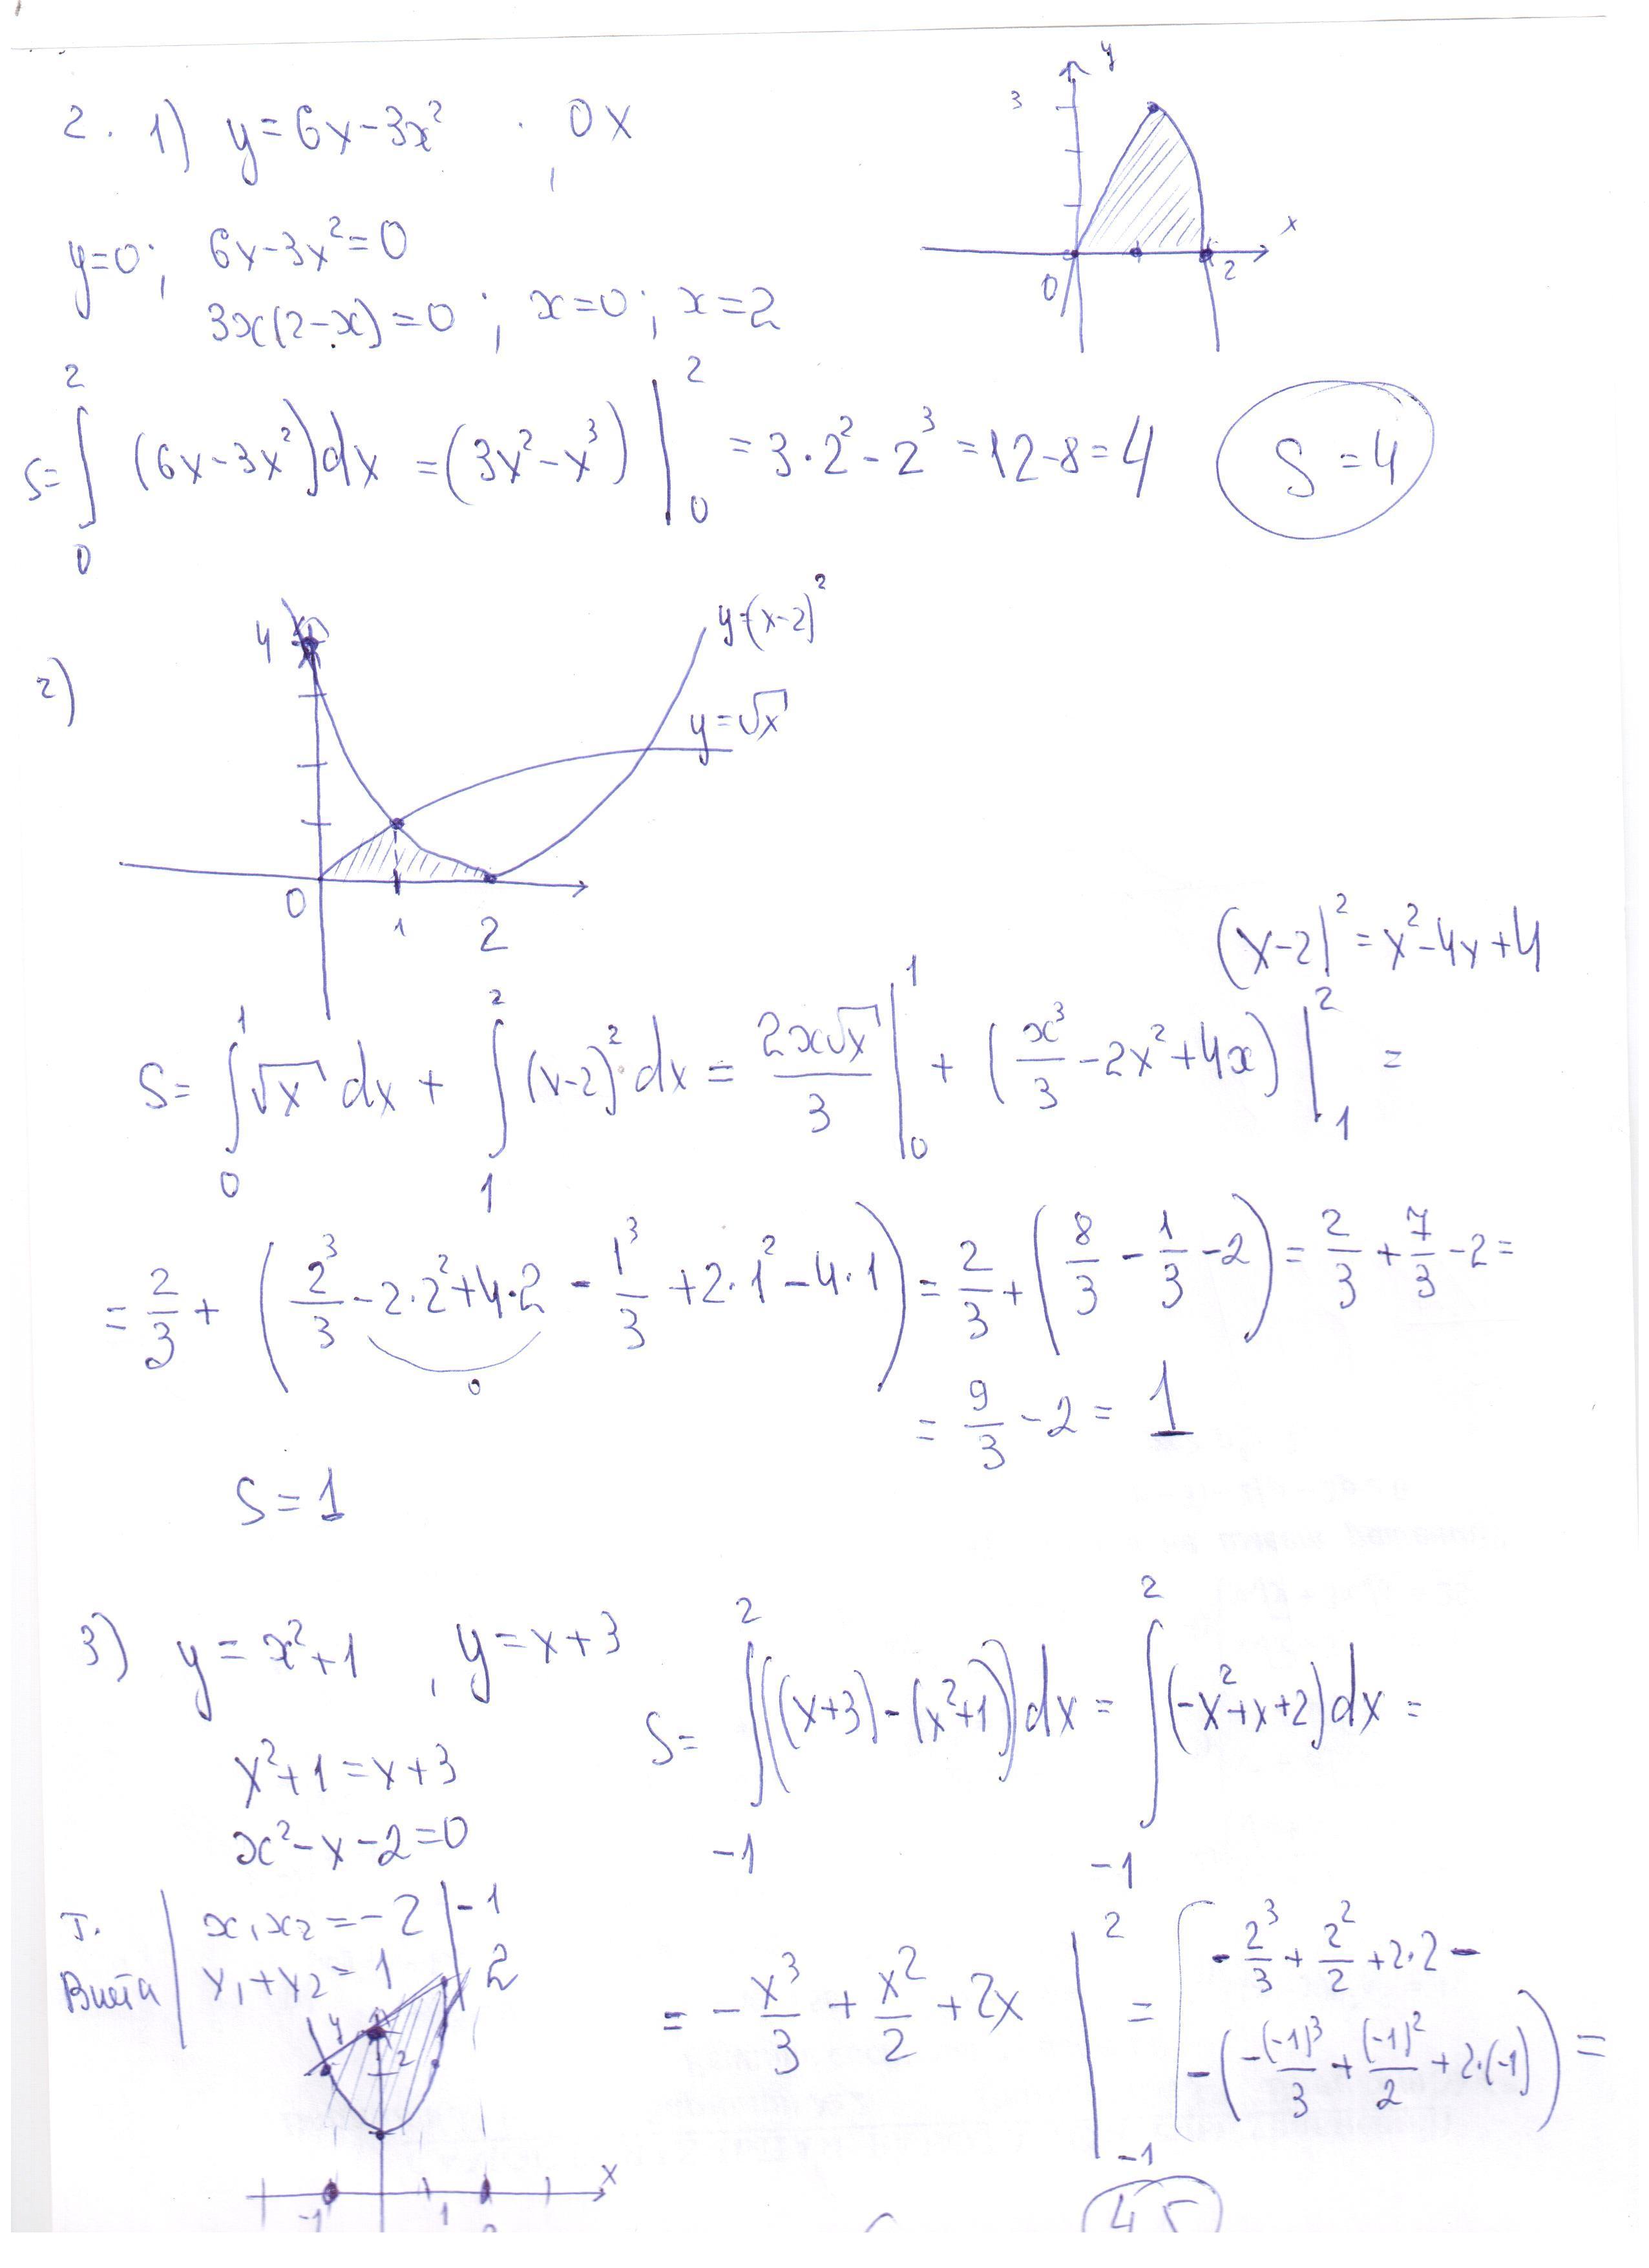 2. 1) y=6x-3x² ; 0x
y
3
x
0
2
y=0; 6x-3x²=0
3x(2-x)=0; x=0; x=2
S=∫₀² (6x-3x²)dx =(3x²-x³)|₀² = 3·2²-2³=12-8=4 S=4
2)
4
y=(x-2)²
y=√x
0 1 2
(x-2)²=x²-4x+4
S=∫₀¹ √x dx + ∫₁² (x-2)² dx = 2x√x/3 |₀¹ + (x³/3 -2x²+4x)|₁² =
= 2/3 + (2³/3 -2·2²+4·2 - 1³/3 +2·1²-4·1) = 2/3 + (8/3 - 1/3 -2) = 2/3 + 7/3 -2=
0
= 9/3 -2= 1
S=1
3) y=x²+1, y=x+3
S= ∫₋₁² ((x+3)-(x²+1))dx = ∫₋₁² (-x²+x+2)dx =
x²+1=x+3
x²-x-2=0
т. Виета | x₁x₂=-2 | -1
x₁+x₂=1 2
= -x³/3 + x²/2 +2x |₋₁² = (-2³/3 + 2²/2 +2·2-
-(-(-1)³/3 + (-1)²/2 +2·(-1)) =
y
2
x
-1 1
4,5